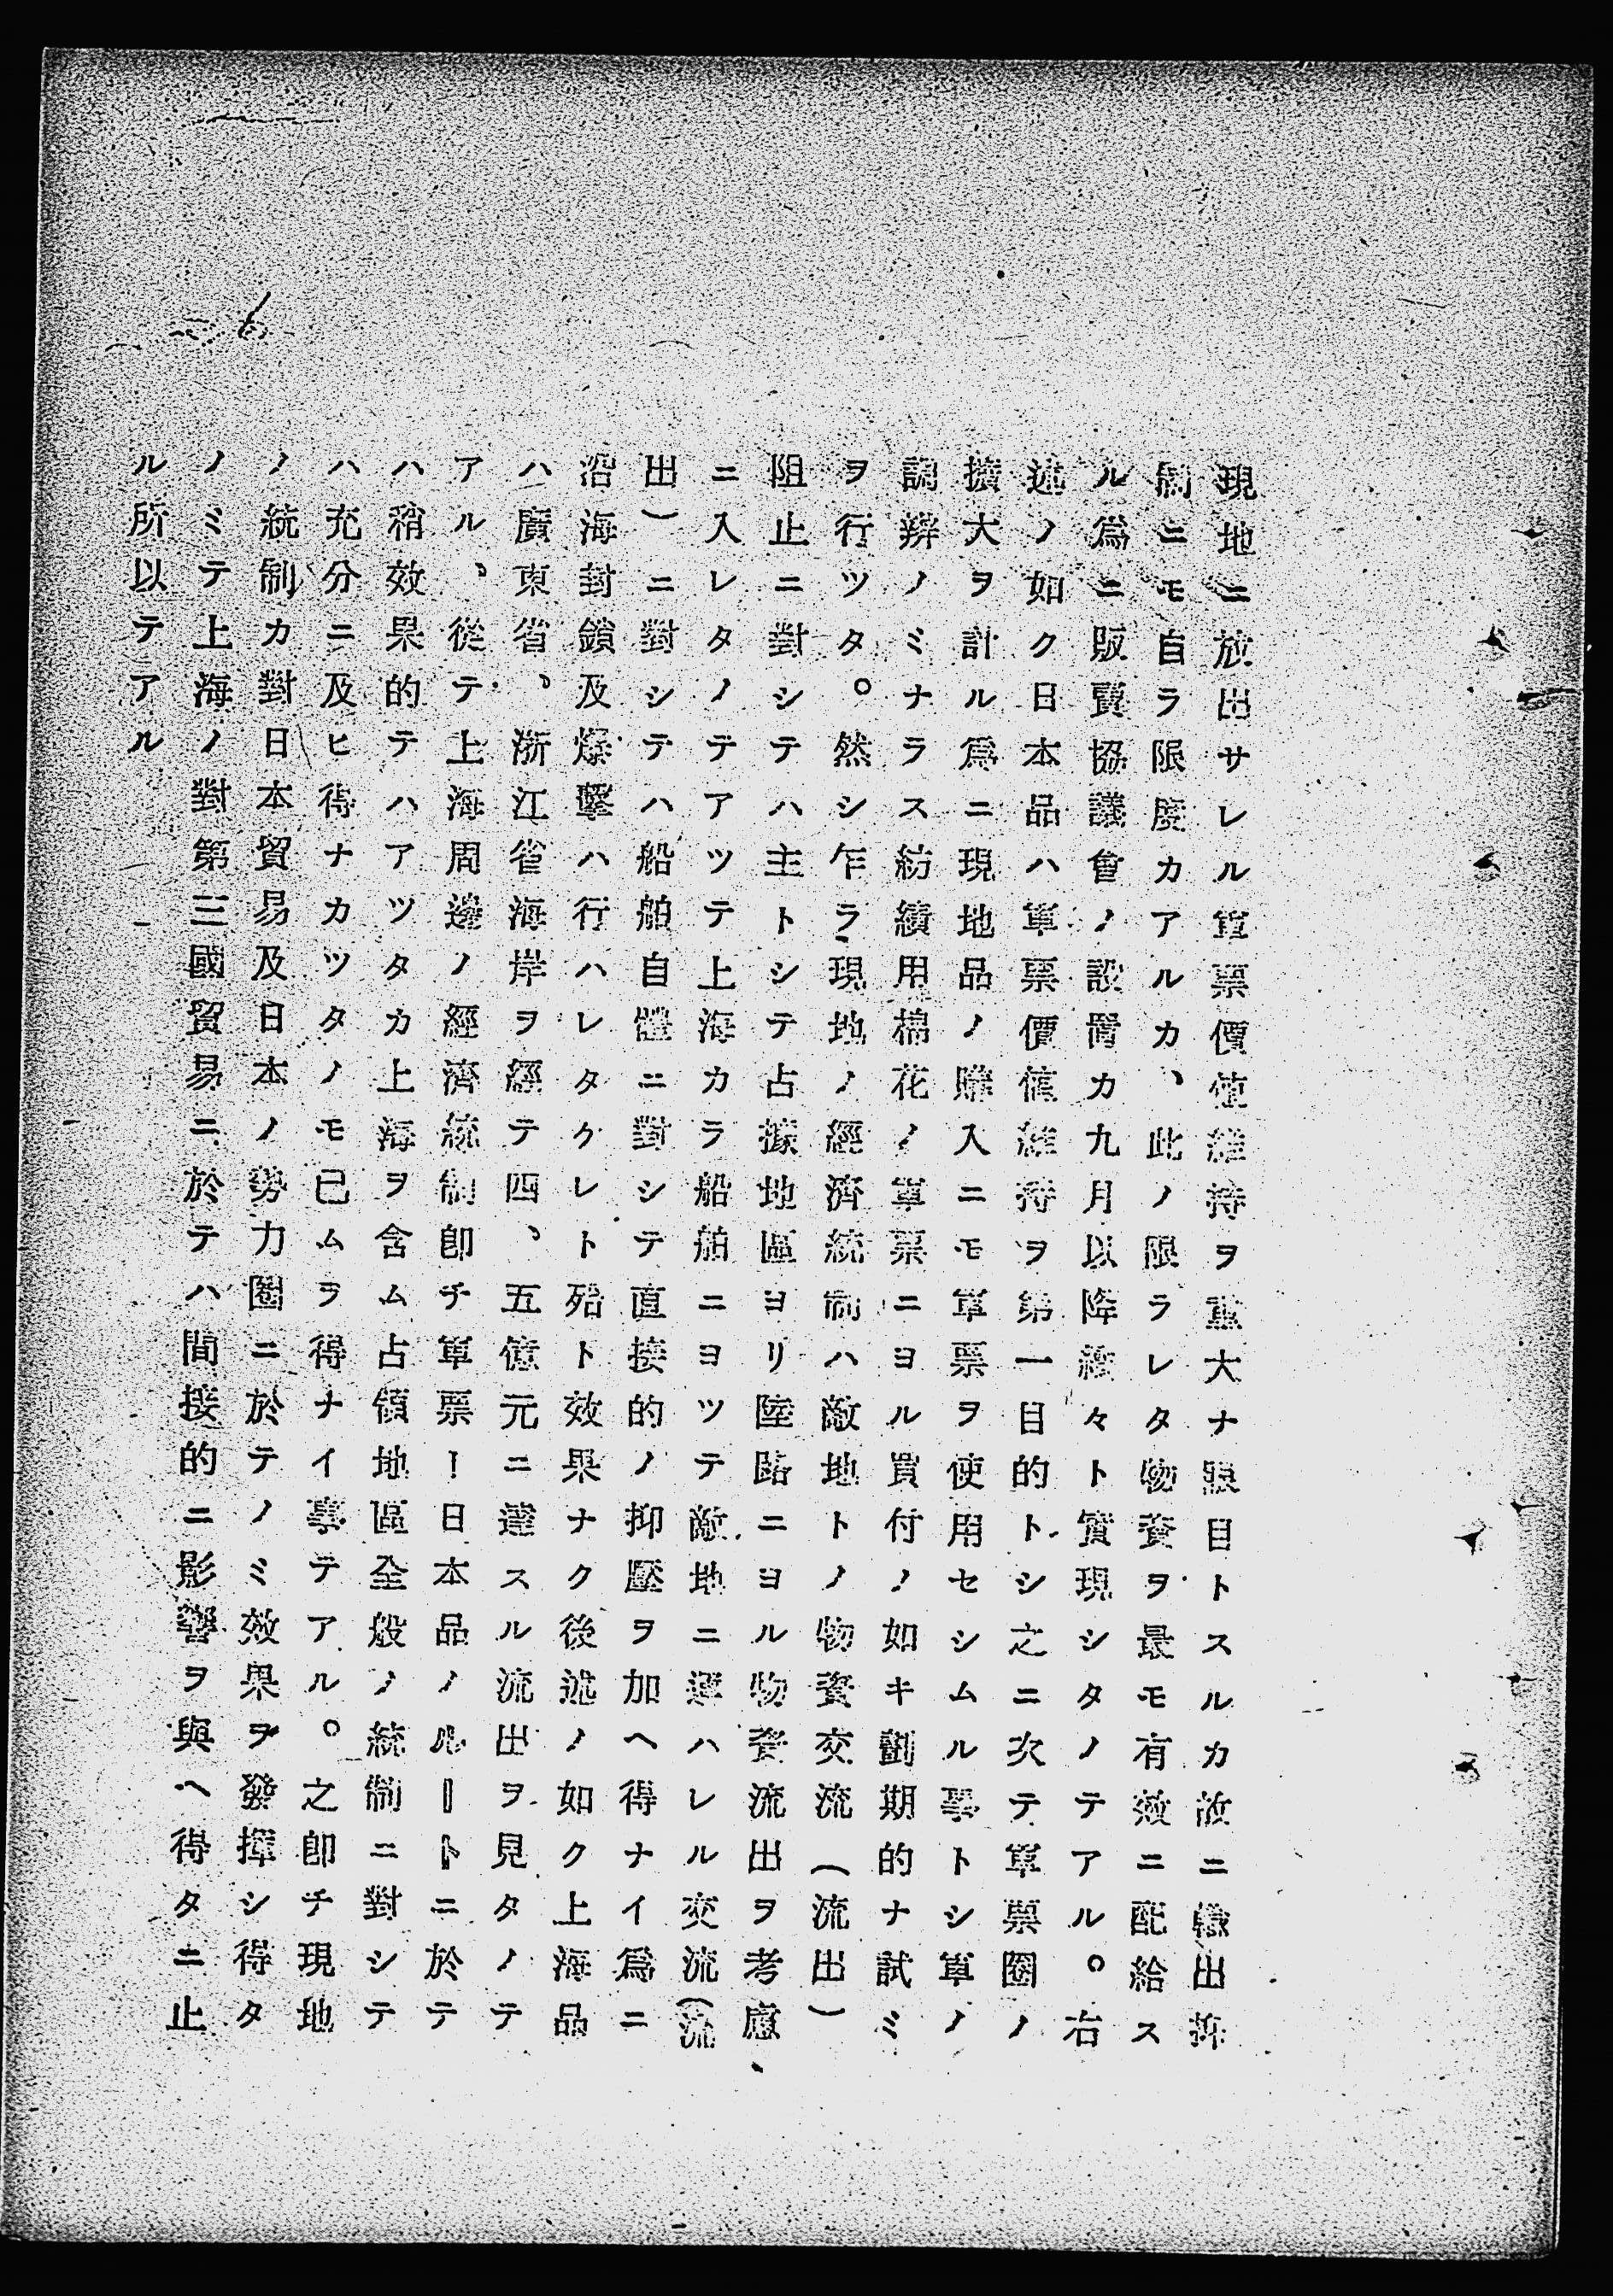 現地ニ放出サレル軍票價値維持ヲ重大ナ眼目トスルカ故ニ輸出抑
制ニモ自ラ限度カアルカ、此ノ限ラレタ物資ヲ最モ有效ニ配給ス
ル爲ニ販賣協議會ノ設置カ九月以降續々ト實現シタノテアル。右
述ノ如ク日本品ハ軍票價値維持ヲ第一目的トシ之ニ次テ軍票圈ノ
擴大ヲ計ル爲ニ現地品ノ購入ニモ軍票ヲ使用セシムル事トシ軍ノ
調辨ノミナラス紡績用棉花ノ軍票ニヨル買付ノ如キ劃期的ナ試ミ
ヲ行ツタ。然シ乍ラ現地ノ經濟統制ハ敵地トノ物資交流(流出)
阻止ニ對シテハ主トシテ占據地區ヨリ陸路ニヨル物資流出ヲ考慮
ニ入レタノテアツテ上海カラ船舶ニヨツテ敵地ニ運ハレル交流(流
出)ニ對シテハ船舶自體ニ對シテ直接的ノ抑壓ヲ加ヘ得ナイ爲ニ
沿海封鎖及爆擊ハ行ハレタケレト殆ト效果ナク後述ノ如ク上海品
ハ廣東省、浙江省海岸ヲ經テ四、五億元ニ達スル流出ヲ見タノテ
アル、從テ上海周邊ノ經濟統制卽チ軍票ー日本品ノルートニ於テ
ハ稍效果的テハアツタカ上海ヲ含ム占領地區全般ノ統制ニ對シテ
ハ充分ニ及ヒ得ナカツタノモ已ムヲ得ナイ事テアル。之卽チ現地
ノ統制カ對日本貿易及日本ノ勢力圈ニ於テノミ效果ヲ發揮シ得タ
ノミテ上海ノ對第三國貿易ニ於テハ間接的ニ影響ヲ與ヘ得タニ止
ル所以テアル